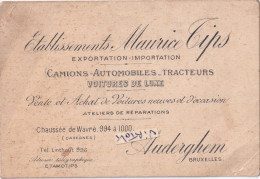 Etablissements Maurice Tips
EXPORTATION-IMPORTATION
CAMIONS-AUTOMOBILES-TRACTEURS
VOITURES DE LUXE
Vente et Achat de Voitures neuves et d'occasion
ATELIERS DE RÉPARATIONS
Chaussée de Wavre, 994 à 1000
Auderghem
BRUXELLES
Tél. Linthout
Adresse télégraphique
ETAMOTIPS